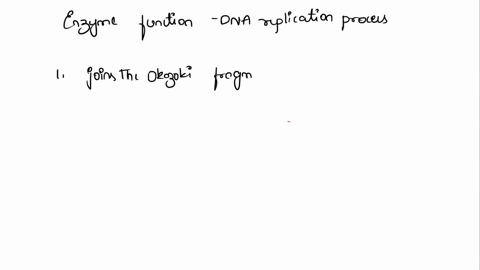 Enzyme function - DNA replication process
1. joins the Okozoki fragm